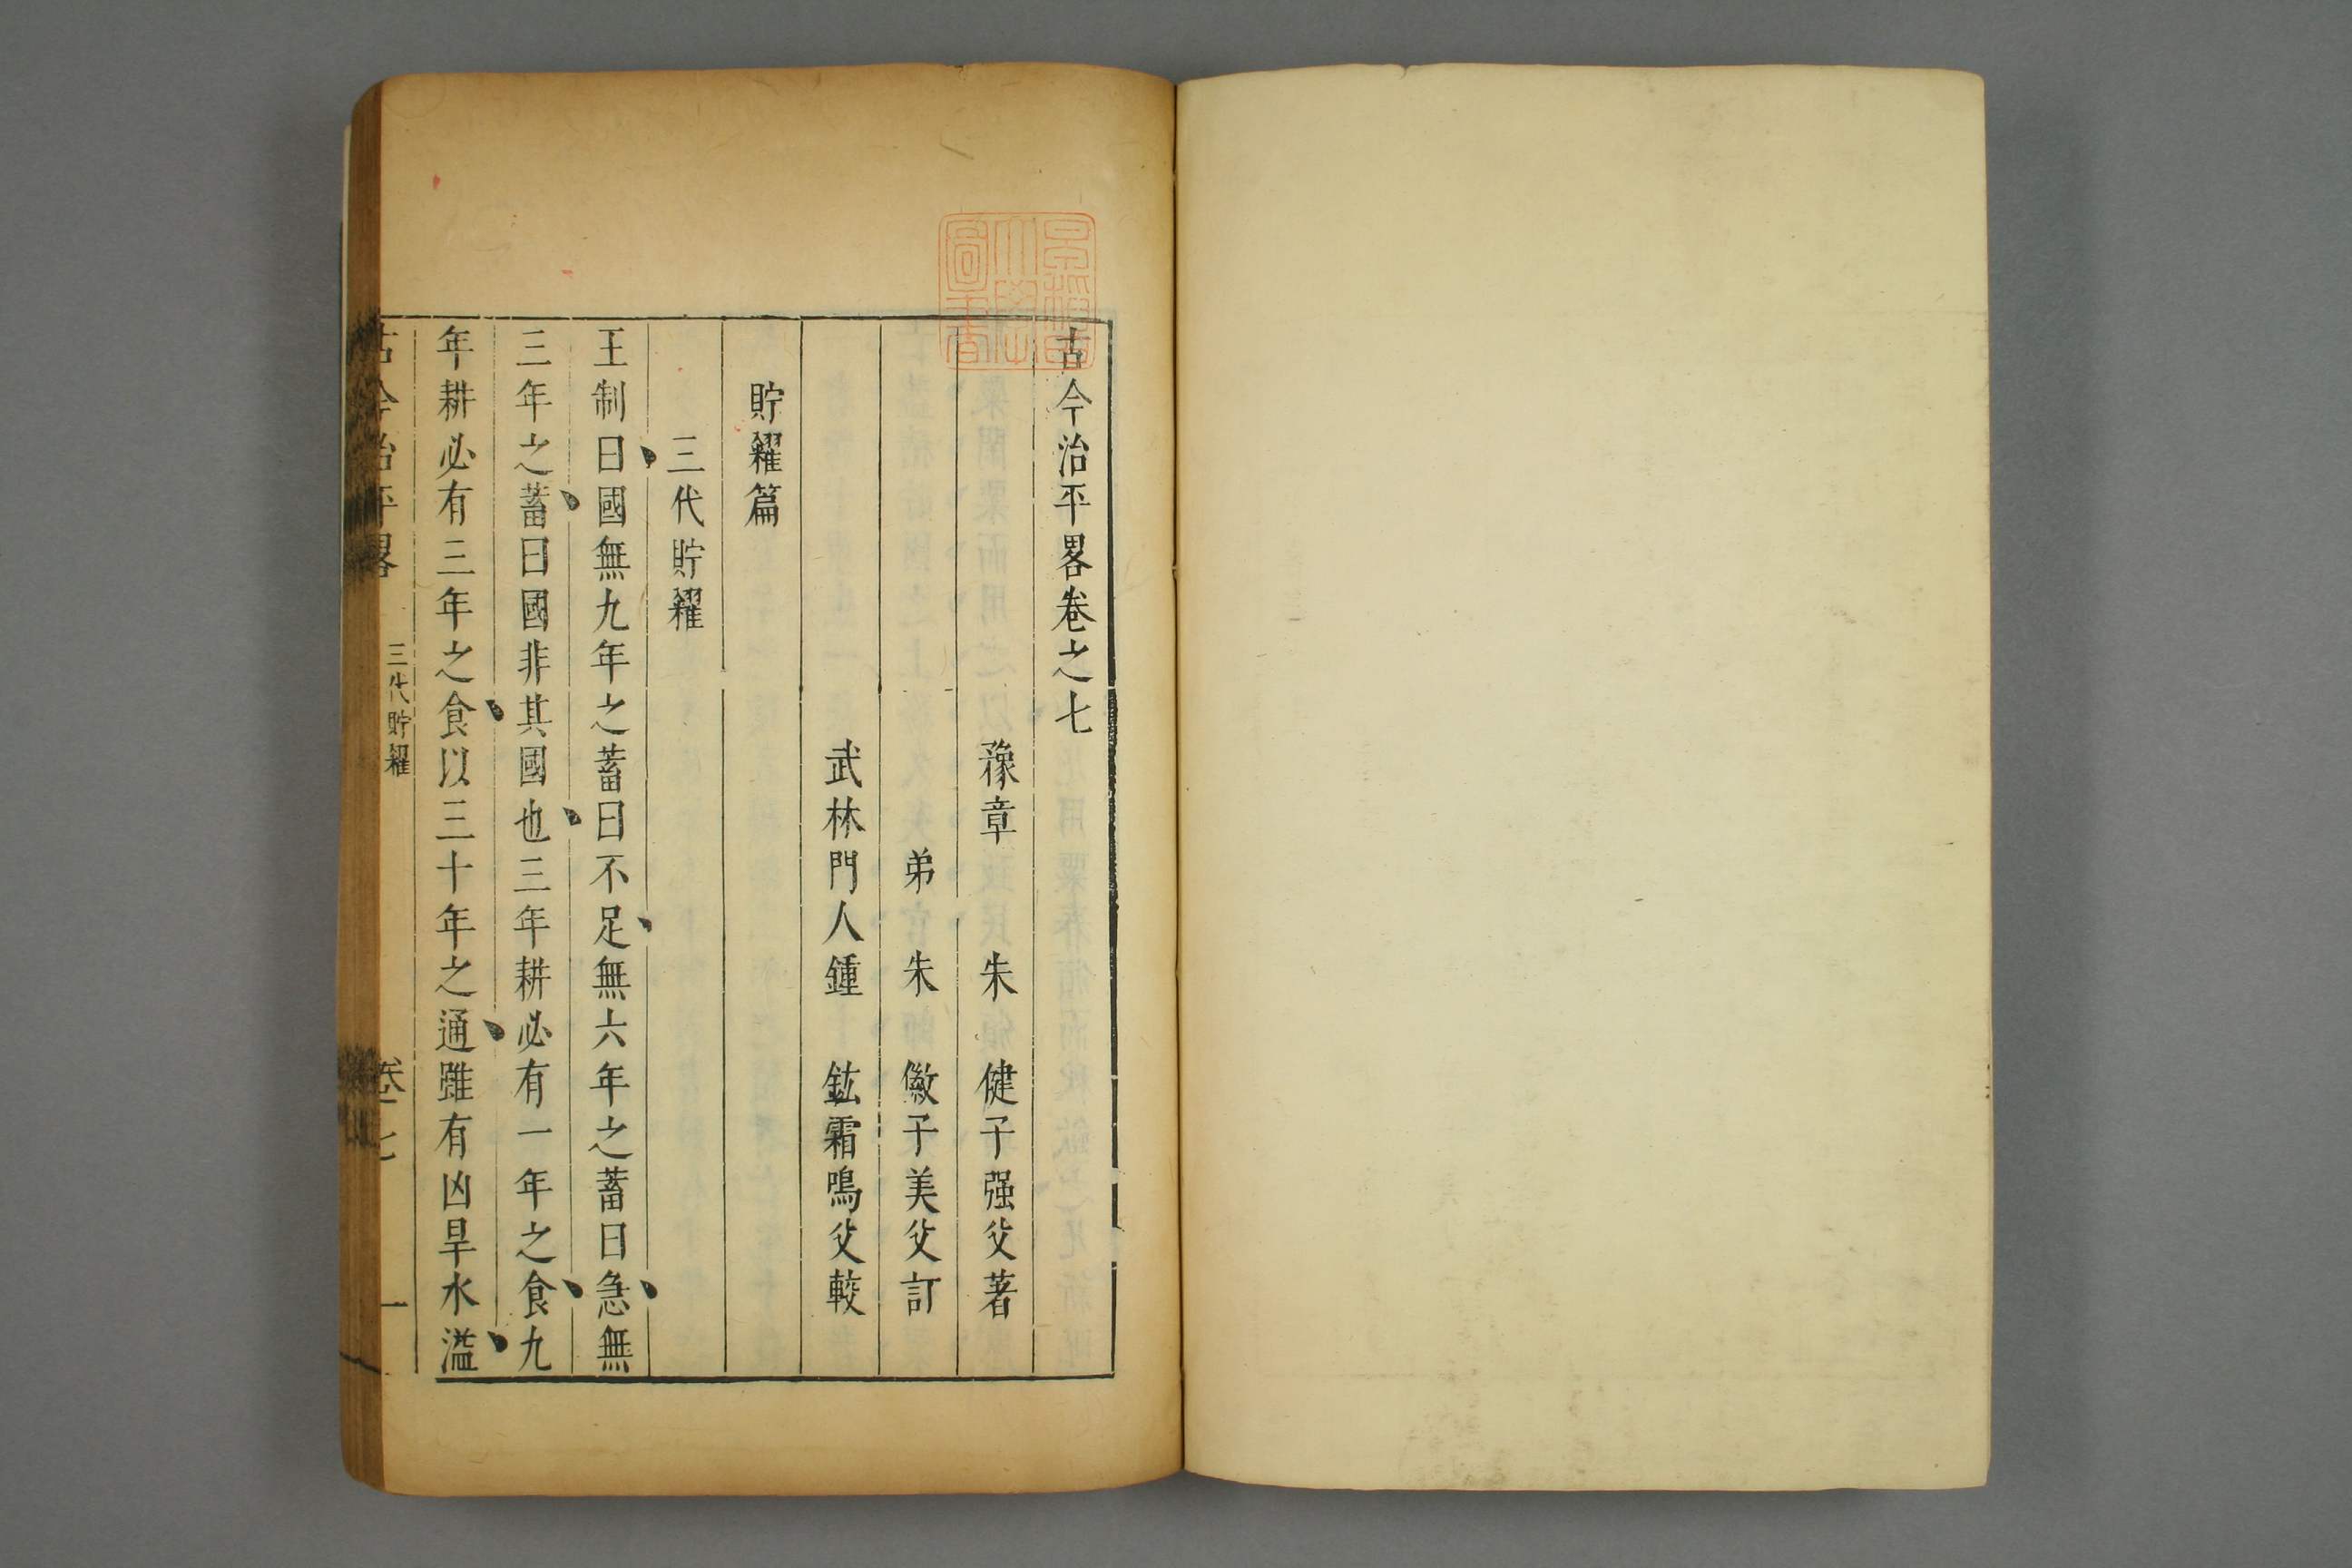 古今治平畧卷之七
豫章 朱 健子强父著
弟 朱 徽子美父訂
武林門人鍾 鈜霜鳴父較
貯糴篇
三代貯糴
王制曰國無九年之蓄曰不足無六年之蓄曰急無
三年之蓄曰國非其國也三年耕必有一年之食九
年耕必有三年之食以三十年之通雖有凶旱水溢
古今治平畧 三代貯糴 卷七 一